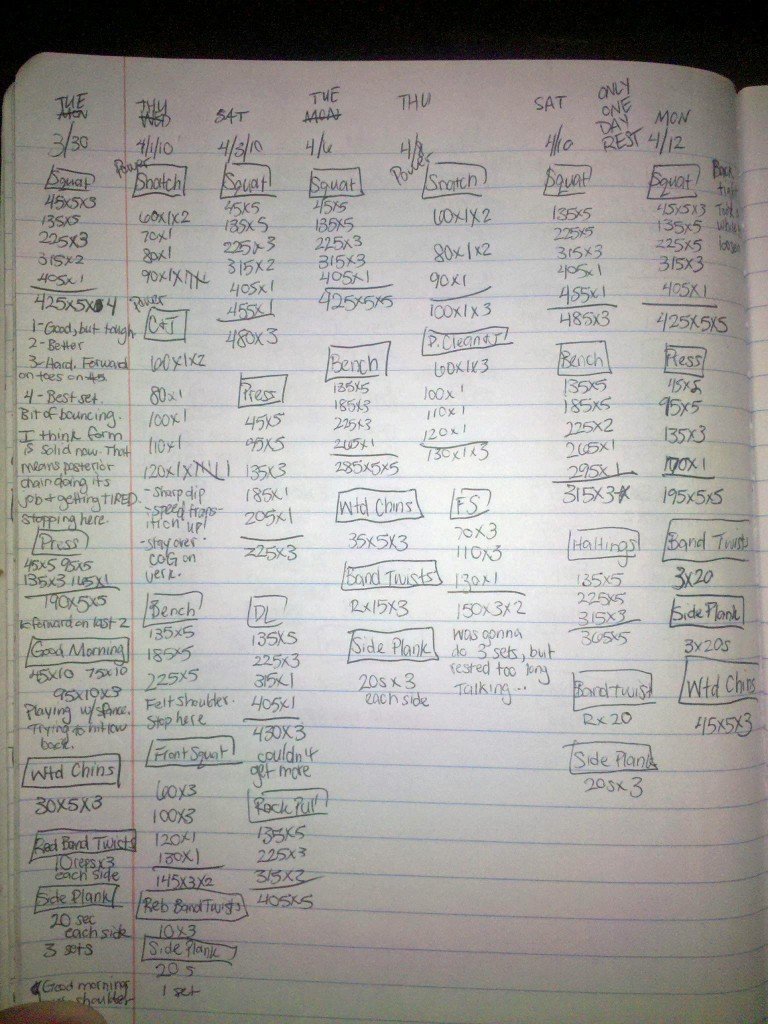 TUE
MON
3/30
Squat
45x5x3
135x5
225x3
315x2
405x1
425x5x4
1-Good, but tough
2-Better
3-Hard. Forward
on toes on 45.
4-Best set.
Bit of bouncing.
I think form
is solid now. That
means posterior
chain doing its
job + getting TIRED.
Stopping here.
Press
45x5 95x5
135x3 165x1
190x5x5
forward on last 2
Good Morning
45x10 75x10
95x10x3
Playing w/ stance.
Trying to hit low
back.
Wtd Chins
30x5x3
Red Band Twists
10 reps x3
each side
Side Plank
20 sec
each side
3 sets
Good morning
shoulder
THU
WED
4/1/10
Power
Snatch
60x1x2
70x1
80x1
90x1x
Power
C+J
60x1x2
80x1
100x1
110x1
120x1x
-sharp dip
-speed trans-
ition up!
-stay over
COG on
jerk.
Bench
135x5
185x5
225x5
Felt shoulder.
Stop here
Front Squat
60x3
100x3
120x1
130x1
145x3x2
Reb Band Twists
10x3
Side Plank
20 s
1 set
SAT
4/3/10
Squat
45x5
135x5
225x3
315x2
405x1
455x1
480x3
Press
45x5
95x5
135x3
185x1
205x1
225x3
DL
135x5
225x3
315x1
405x1
430x3
couldn't
get more
Rack Pull
135x5
225x3
315x2
405x5
TUE
MON
4/6
Squat
45x5
135x5
225x3
315x3
405x1
425x5x5
Bench
135x5
185x3
225x3
265x1
285x5x5
Wtd Chins
35x5x3
Band Twists
Rx15x3
Side Plank
20s x3
each side
THU
4/8
Power
Snatch
60x1x2
80x1x2
90x1
100x1x3
P. Clean+J
60x1x3
100x1
110x1
120x1
130x1x3
FS
70x3
110x3
130x1
150x3x2
Was gonna
do 3 sets, but
rested too long
talking...
SAT
4/10
Squat
135x5
225x5
315x3
405x1
455x1
485x3
Bench
135x5
185x5
225x2
265x1
295x1
315x3
Haltings
135x5
225x5
315x3
365x5
Band twist
Rx20
Side Plank
20s x3
ONLY
ONE
DAY
REST
MON
4/12
Squat
45x5x3
135x5
225x5
315x3
405x1
425x5x5
Back
tight
Press
45x5
95x5
135x3
170x1
195x5x5
Band Twists
3x20
Side Plank
3x20s
Wtd Chins
45x5x3